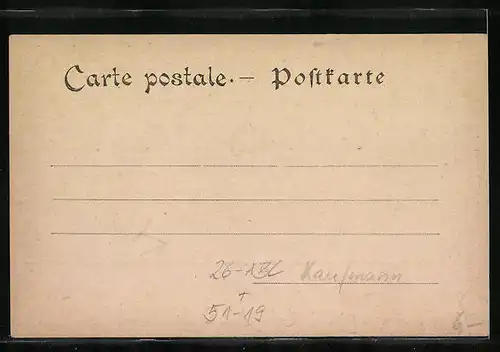 Carte postale.— Poſtkarte
Kaufmann
51-19